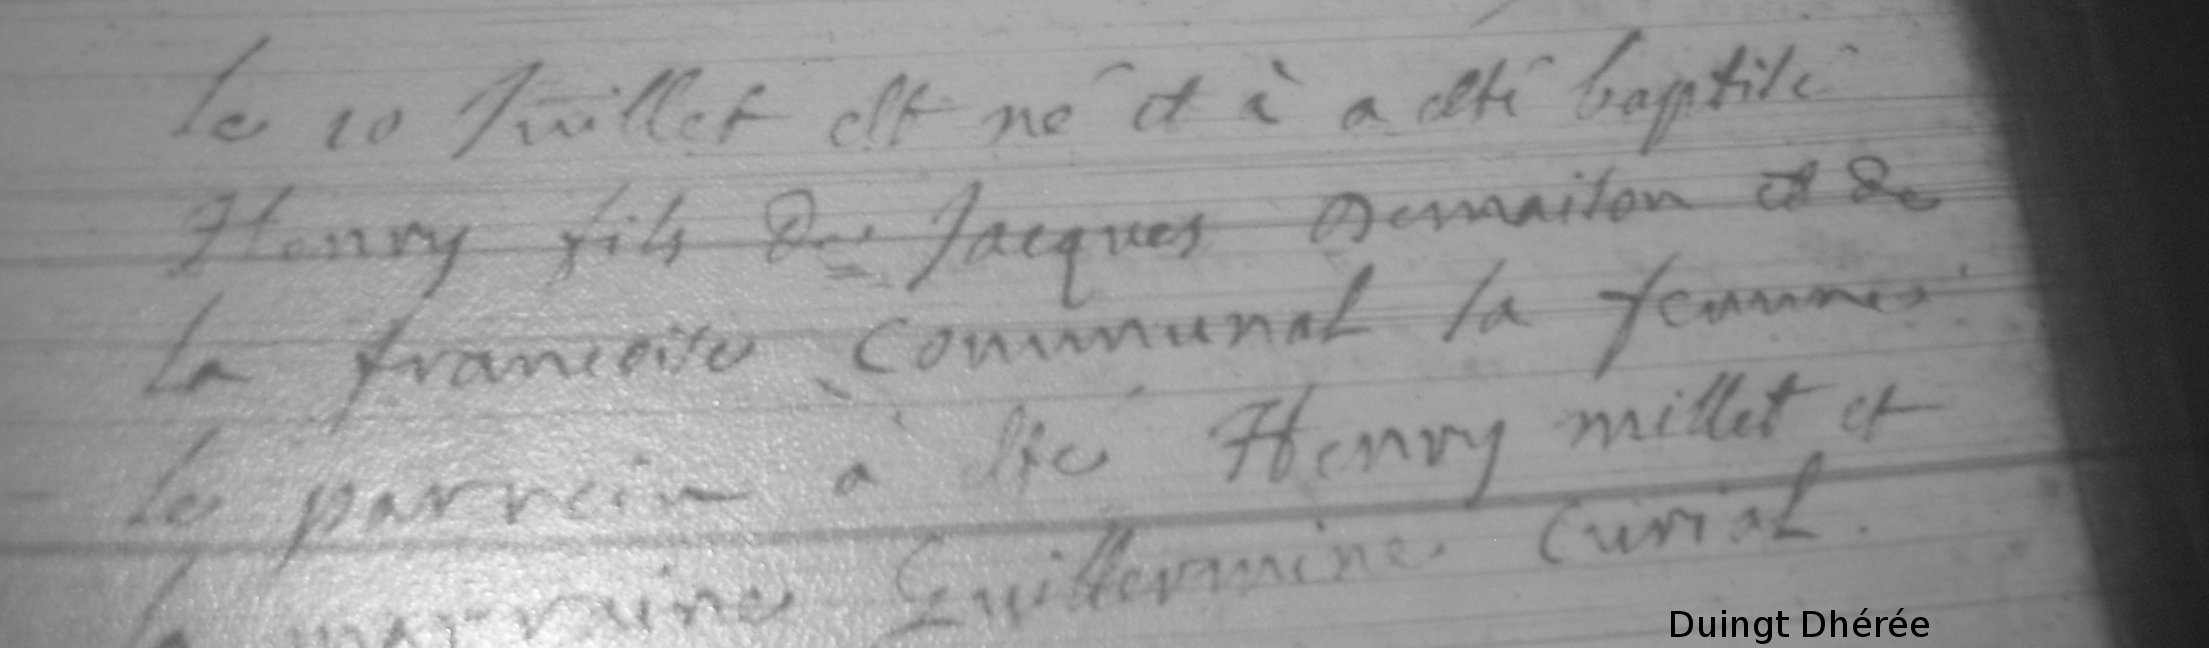 le 10 Juillet est né et à a esté baptisé
Henry fils de Jacques Demaison et de
la francoise Communal sa femme
le parrein à esté Henry millet et
la marraine Guillermine Curial.
Duingt Dhérée